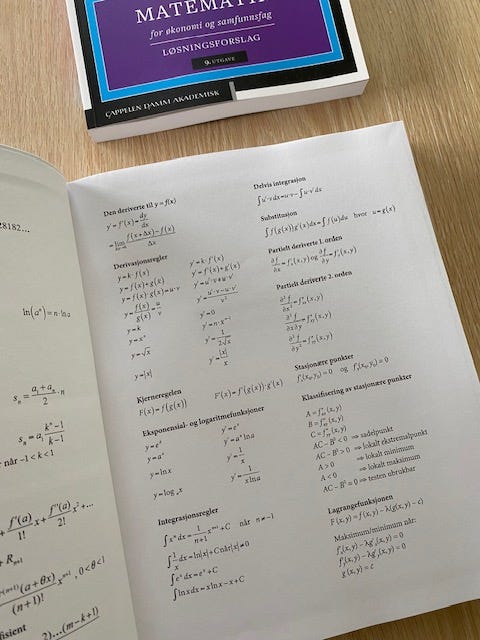 MATEMATI
for økonomi og samfunnsfag
LØSNINGSFORSLAG
9. UTGAVE
CAPPELEN DAMM AKADEMISK
28182...
ln(aⁿ)=n·ln a
sₙ = (a₁+aₙ)/2 · n
sₙ = a₁ (kⁿ−1)/(k−1)
når −1<k<1
+ f'(a)/1! x + f''(a)/2! x² + ...
+ Rₙ₊₁
(a+θx)/(n+1)! xⁿ⁺¹, 0<θ<1
fisient
2)...(m−k+1)
Den deriverte til y = f(x)
y' = f'(x) = dy/dx
= lim f(x+Δx)−f(x) / Δx
Derivasjonsregler
y=k·f(x) y'=k·f'(x)
y=f(x)+g(x) y'=f'(x)+g'(x)
y=f(x)·g(x)=u·v y'=u'·v+u·v'
y=f(x)/g(x)=u/v y'=(u'·v−u·v')/v²
y=k y'=0
y=xⁿ y'=n·xⁿ⁻¹
y=√x y'=1/(2√x)
y=|x| y'=|x|/x
Kjerneregelen
F(x)=f(g(x)) F'(x)=f'(g(x))·g'(x)
Eksponensial- og logaritmefunksjoner
y=eˣ y'=eˣ
y=aˣ y'=aˣ ln a
y=ln x y'=1/x
y=logₐx y'=1/(x ln a)
Integrasjonsregler
∫xⁿ dx = 1/(n+1) xⁿ⁺¹+C når n ≠ −1
∫1/x dx = ln|x|+C når |x| ≠ 0
∫eˣ dx = eˣ+C
∫ln x dx = x ln x − x + C
Delvis integrasjon
∫u'·v dx = u·v − ∫u·v' dx
Substitusjon
∫f(g(x))g'(x)dx = ∫f(u)du hvor u = g(x)
Partielt deriverte 1. orden
∂f/∂x = f'ₓ(x,y) og ∂f/∂y = f'ᵧ(x,y)
Partielt deriverte 2. orden
∂²f/∂x² = f''ₓₓ(x,y)
∂²f/∂x∂y = f''ₓᵧ(x,y)
∂²f/∂y² = f''ᵧᵧ(x,y)
Stasjonære punkter
f'ₓ(x₀,y₀) = 0 og f'ᵧ(x₀,y₀) = 0
Klassifisering av stasjonære punkter
A = f''ₓₓ(x,y)
B = f''ₓᵧ(x,y)
C = f''ᵧᵧ(x,y)
AC − B² < 0 ⇒ sadelpunkt
AC − B² > 0 ⇒ lokalt ekstremalpunkt
A > 0 ⇒ lokalt minimum
A < 0 ⇒ lokalt maksimum
AC − B² = 0 ⇒ testen ubrukbar
Lagrangefunksjonen
F(x,y) = f(x,y) − λ(g(x,y) − c)
Maksimum/minimum når:
f'ₓ(x,y) − λg'ₓ(x,y) = 0
f'ᵧ(x,y) − λg'ᵧ(x,y) = 0
g(x,y) = c